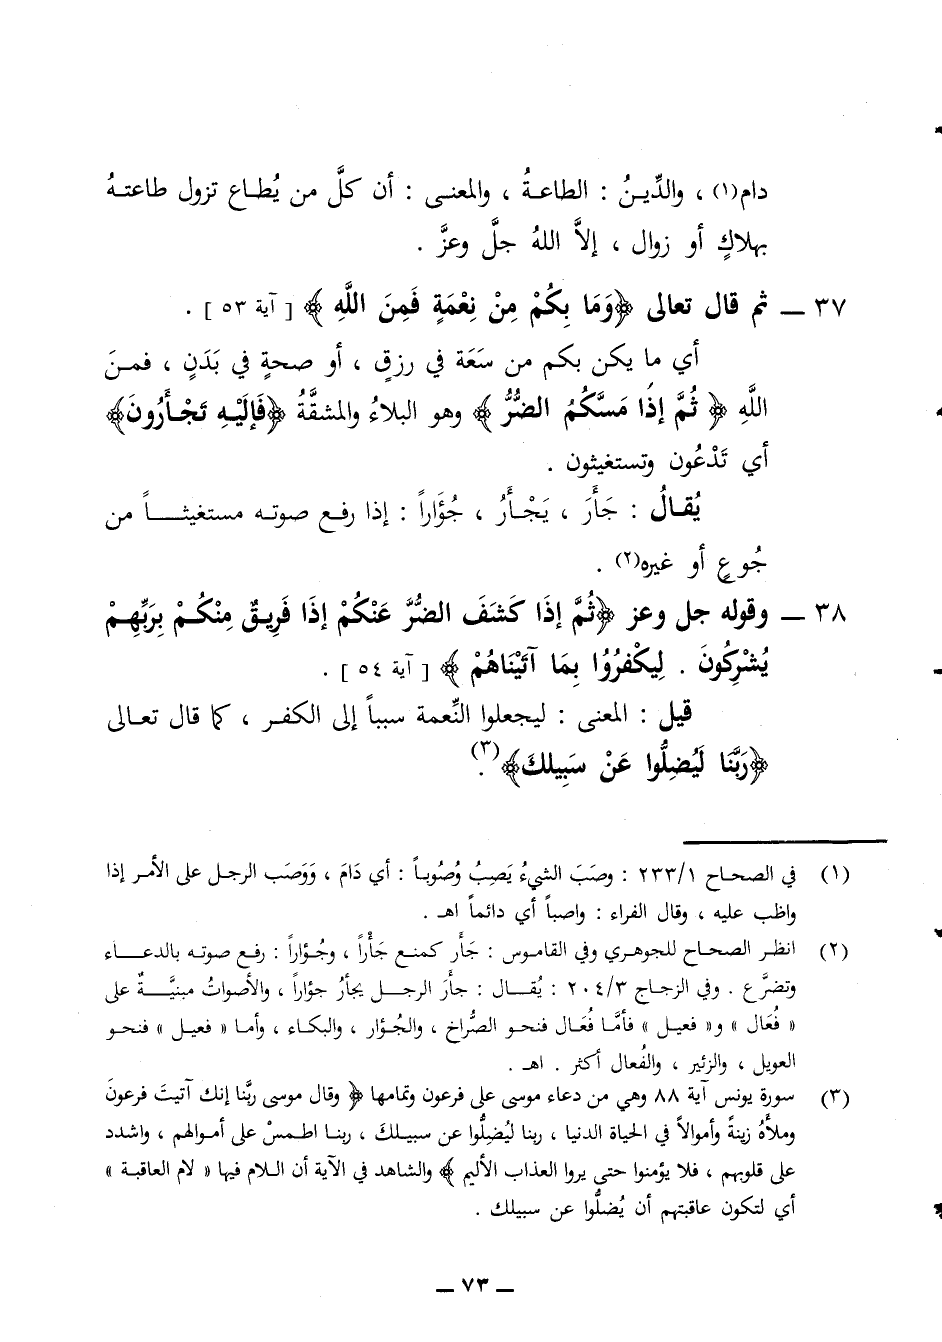 دام(١) ، والدِّينُ : الطاعةُ ، والمعنى : أن كلَّ من يُطاع تزول طاعتهُ
بهلاكٍ أو زوال ، إلاَّ اللهُ جلَّ وعزَّ .
٣٧ ــ ثم قال تعالى ﴿وَمَا بِكُمْ مِنْ نِعْمَةٍ فَمِنَ اللَّهِ ﴾ [ آية ٥٣ ] .
أي ما يكن بكم من سَعَة في رزقٍ ، أو صحةٍ في بَدَنٍ ، فمنَ
اللَّهِ ﴿ ثُمَّ إِذَا مَسَّكُمُ الضُّرُّ ﴾ وهو البلاءُ والمشقَّةُ ﴿فَإِلَيْهِ تَجْأَرُونَ﴾
أي تَدْعُون وتستغيثون .
يُقالُ : جَأَرَ ، يَجْأَرُ ، جُؤَاراً : إذا رفع صوته مستغيثاً من
جُوعٍ أو غيره(٢) .
٣٨ ــ وقوله جل وعز ﴿ثُمَّ إِذَا كَشَفَ الضُّرَّ عَنْكُمْ إِذَا فَرِيقٌ مِنْكُمْ بِرَبِّهِمْ
يُشْرِكُونَ . لِيَكْفُرُوا بِمَا آتَيْنَاهُمْ ﴾ [ آية ٥٤ ] .
قيل : المعنى : ليجعلوا النِّعمة سبباً إلى الكفر ، كما قال تعالى
﴿رَبَّنَا لَيُضِلُّوا عَنْ سَبِيلكَ﴾(٣).
(١) في الصحاح ٢٣٣/١ : وصَبَ الشيءُ يَصِبُ وُصُوباً : أي دَامَ ، وَوَصَب الرجل على الأمر إذا
واظب عليه ، وقال الفراء : واصباً أي دائماً اهـ .
(٢) انظر الصحاح للجوهري وفي القاموس : جَأَر كمنع جَأْراً ، وجُؤاراً : رفع صوته بالدعاء
وتضرَّع . وفي الزجاج ٢٠٤/٣ : يُقال : جأر الرجل يجأرُ جؤاراً ، والأصواتُ مبنيَّةٌ على
« فُعَال » و« فعيل » فأمَّا فُعَال فنحو الصُّراخ ، والجُؤار ، والبكاء ، وأما « فعيل » فنحو
العويل ، والزئير ، والفُعال أكثر . اهـ .
(٣) سورة يونس آية ٨٨ وهي من دعاء موسى على فرعون وتمامها ﴿ وقال موسى ربَّنا إنك آتيتَ فرعونَ
وملأهُ زينةً وأموالاً في الحياة الدنيا ، ربنا ليُضلُّوا عن سبيلكَ ، ربنا اطمسْ على أموالهم ، واشدد
على قلوبهم ، فلا يؤمنوا حتى يروا العذاب الأليم ﴾ والشاهد في الآية أن اللام فيها « لام العاقبة »
أي لتكون عاقبتهم أن يُضلُّوا عن سبيلك .
ــ ٧٣ ــ